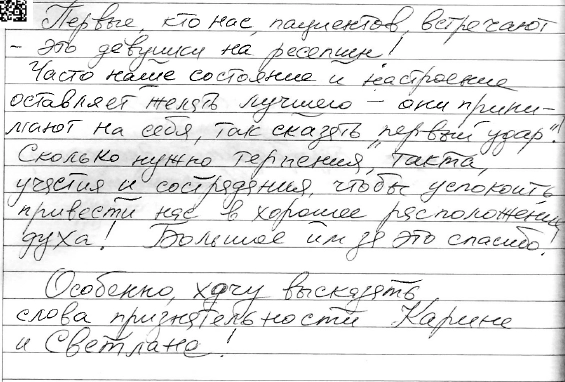 Первые, кто нас, пациентов, встречают
- это девушки на ресепшн!
Часто наше состояние и настроение
оставляет желать лучшего – они прини-
мают на себя, так сказать „первый удар"!
Сколько нужно терпения, такта,
участия и сострадания, чтобы успокоить,
привести нас в хорошее расположение
духа! Большое им за это спасибо!
Особенно, хочу высказать
слова признательности Карине
и Светлане!